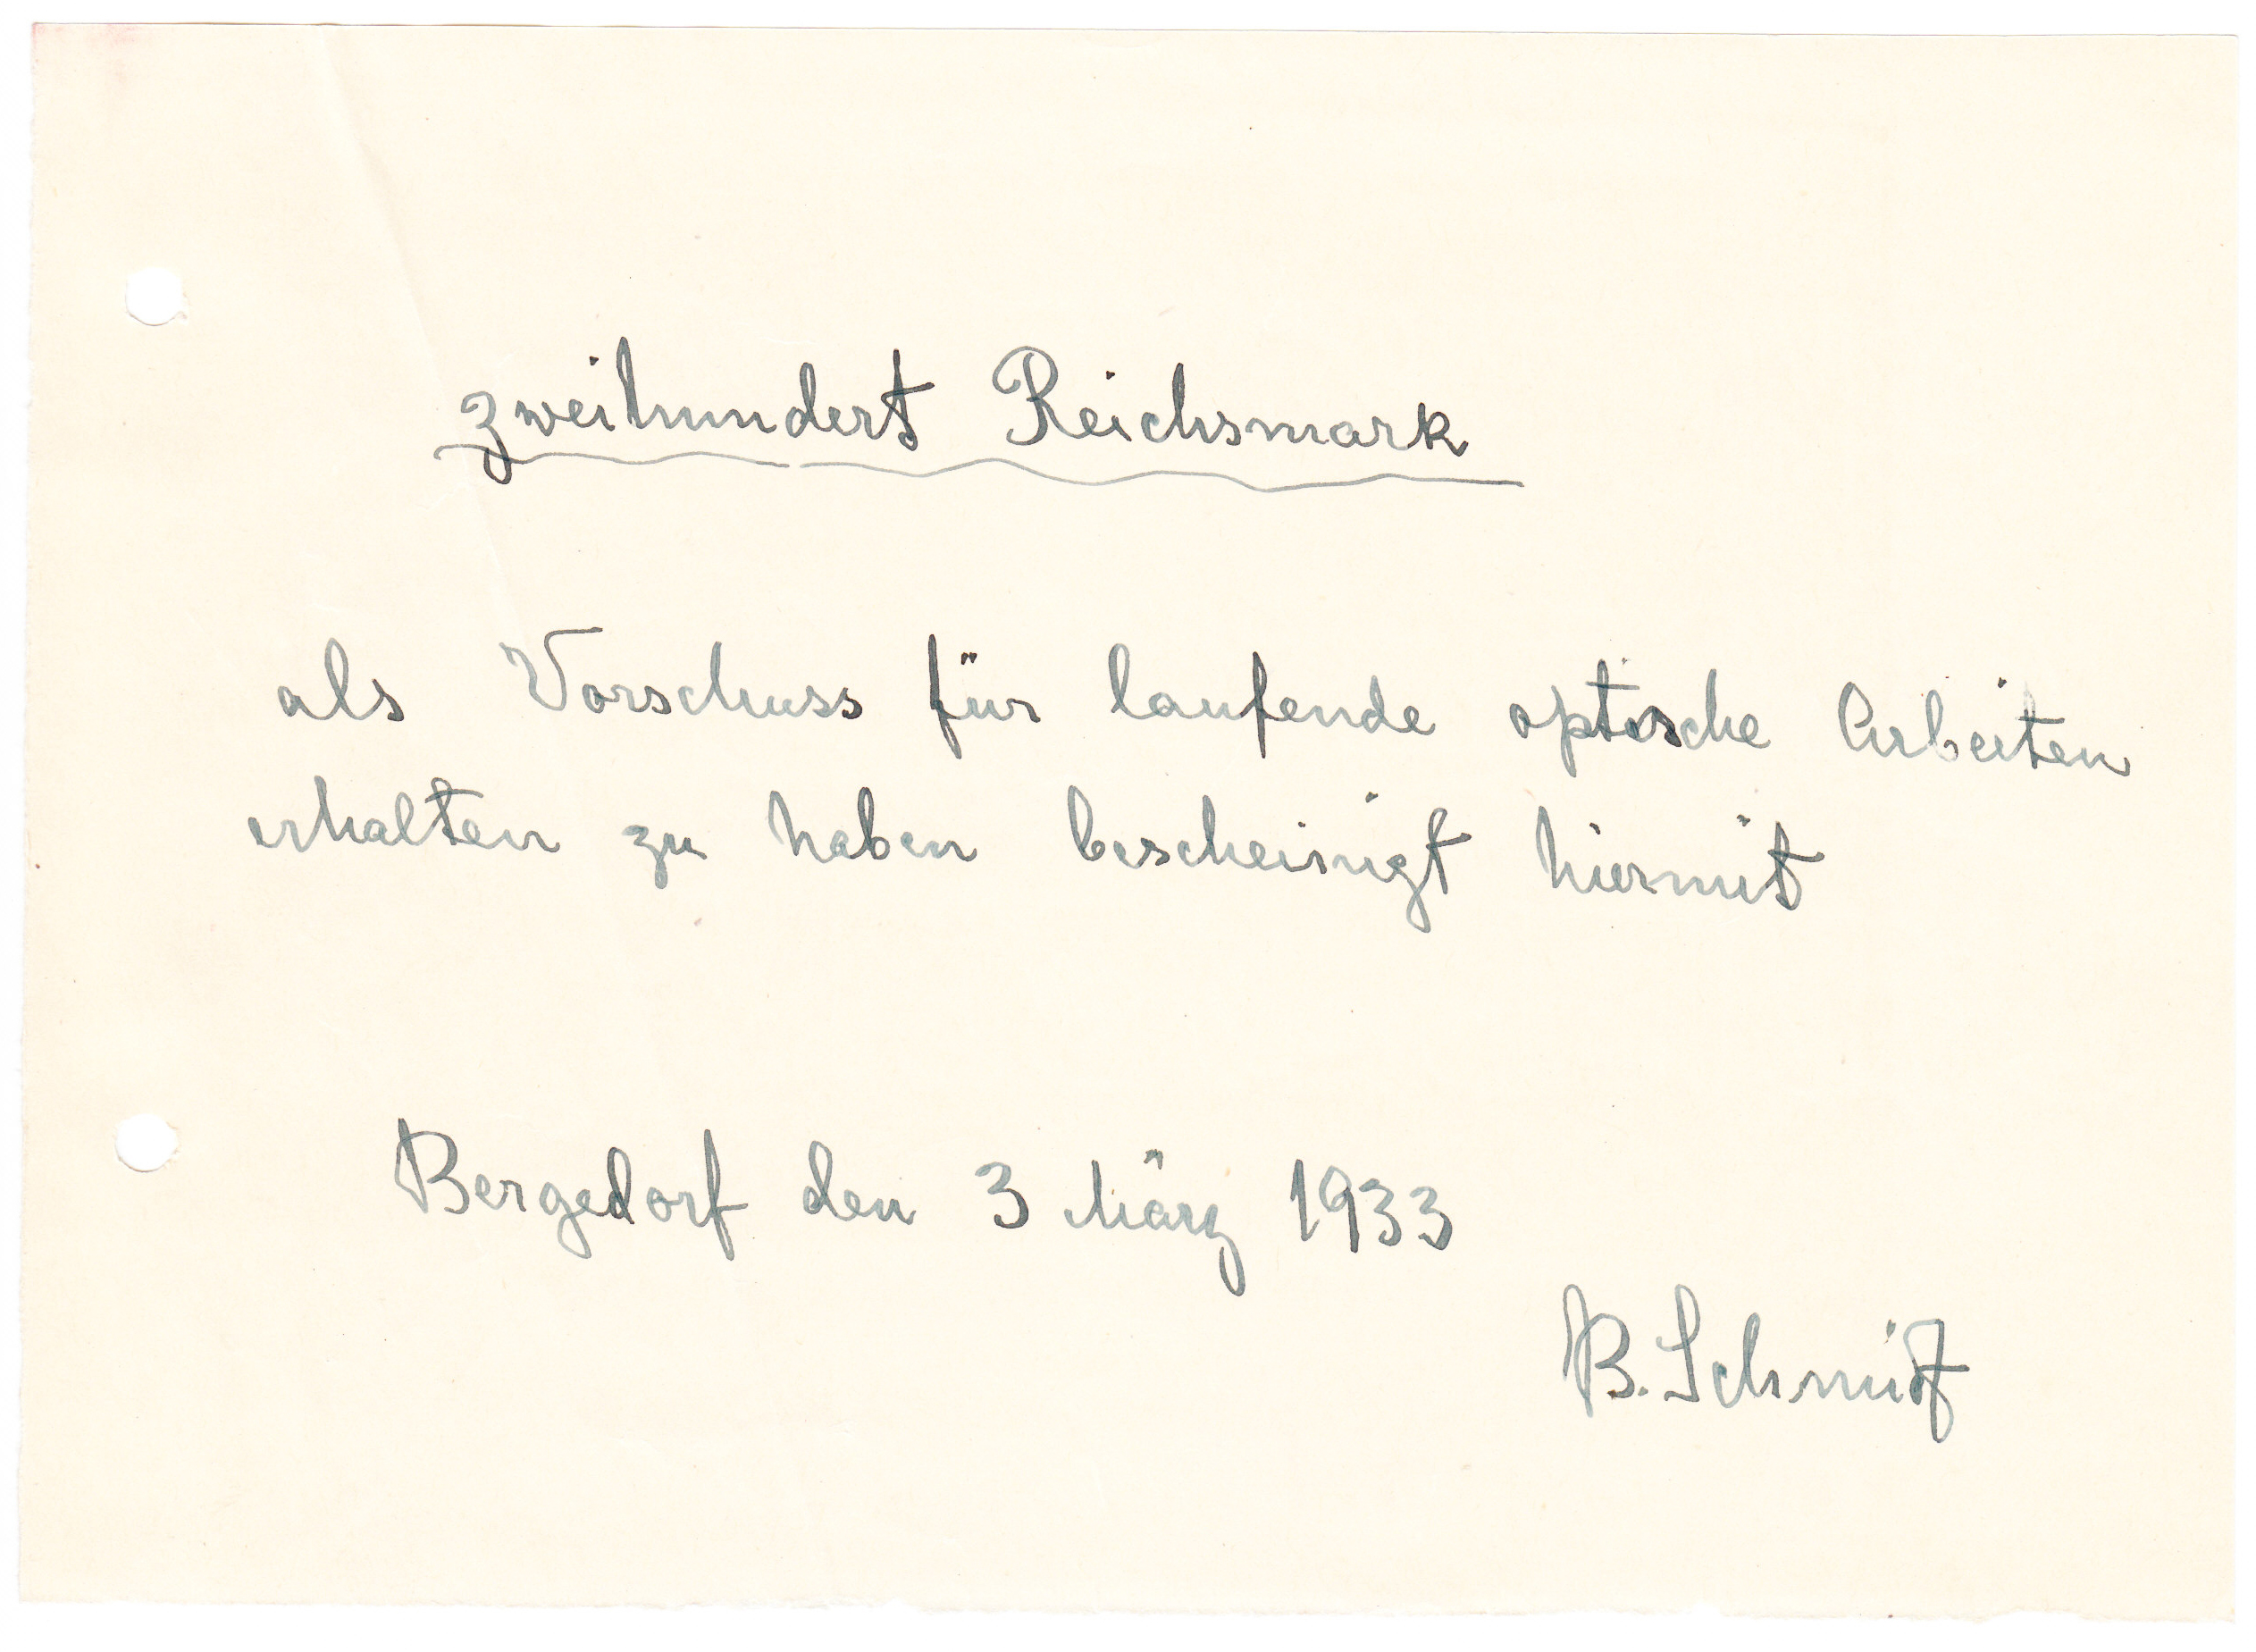 zweihundert Reichsmark
als Vorschuss für laufende optische Arbeiten
erhalten zu haben bescheinigt hiermit
Bergedorf den 3 März 1933
B. Schmidt